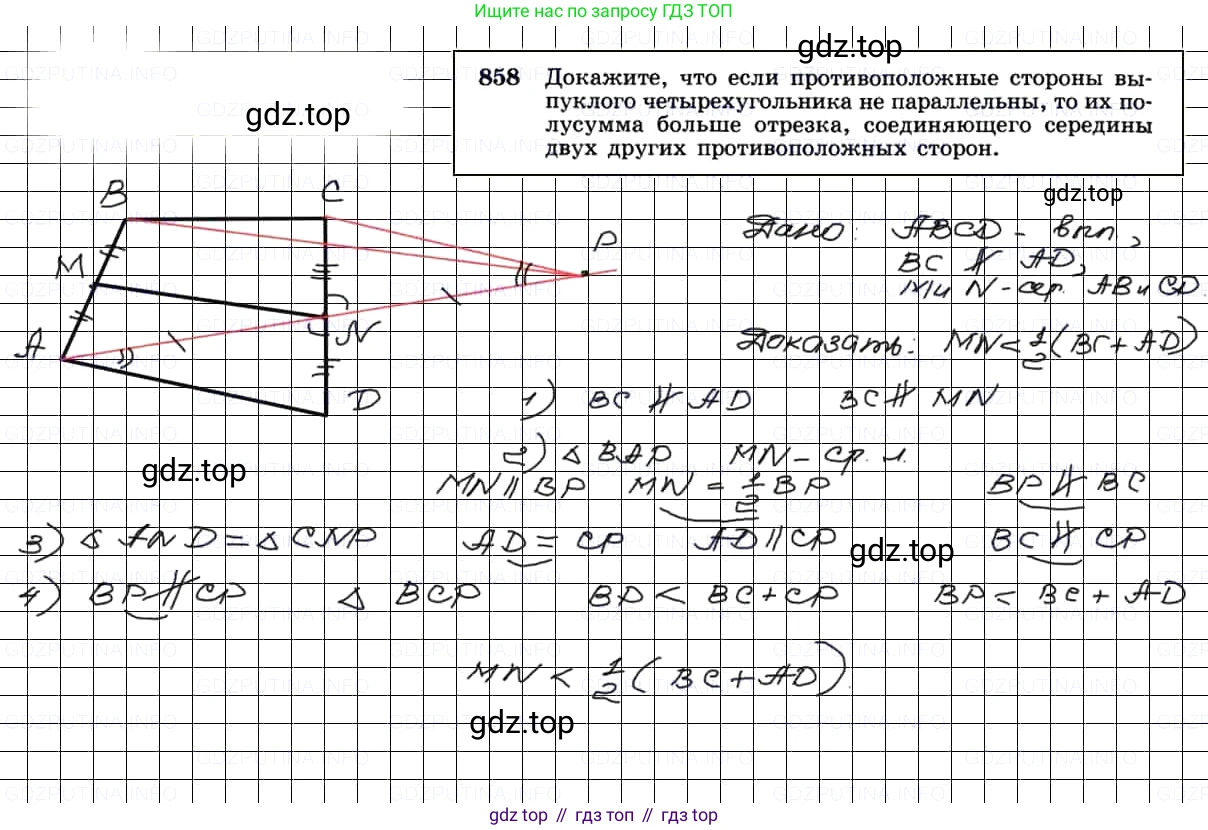 Ищите нас по запросу ГДЗ ТОП
gdz.top
858 Докажите, что если противоположные стороны вы-
пуклого четырехугольника не параллельны, то их по-
лусумма больше отрезка, соединяющего середины
двух других противоположных сторон.
gdz.top
gdz.top
B C
P
M
A N
D
Дано: ABCD - вып.,
BC ∦ AD,
M и N - сер. AB и CD.
Доказать: MN < 1/2 (BC + AD)
1) BC ∦ AD BC ∦ MN
2) △ BAP MN - ср. л.
gdz.top
MN ∥ BP MN = 1/2 BP BP ∦ BC
3) △ AND = △ CNP AD = CP AD ∥ CP BC ∦ CP
gdz.top
4) BP ∦ CP △ BCP BP < BC + CP BP < BC + AD
MN < 1/2 (BC + AD).
gdz.top
gdz top // гдз топ // gdz.top
GDZPUTINA.INFO